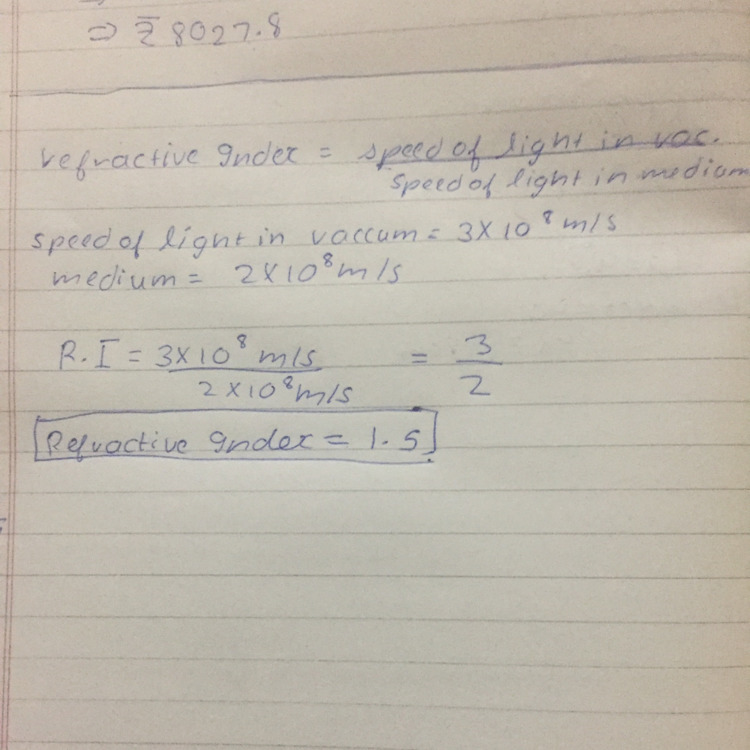 ⇒ ₹ 8027.8
refractive Index = speed of light in vac.
speed of light in medium
speed of light in vaccum = 3×10⁸ m/s
medium = 2×10⁸ m/s
R.I = 3×10⁸ m/s = 3
2×10⁸ m/s 2
Refractive Index = 1.5